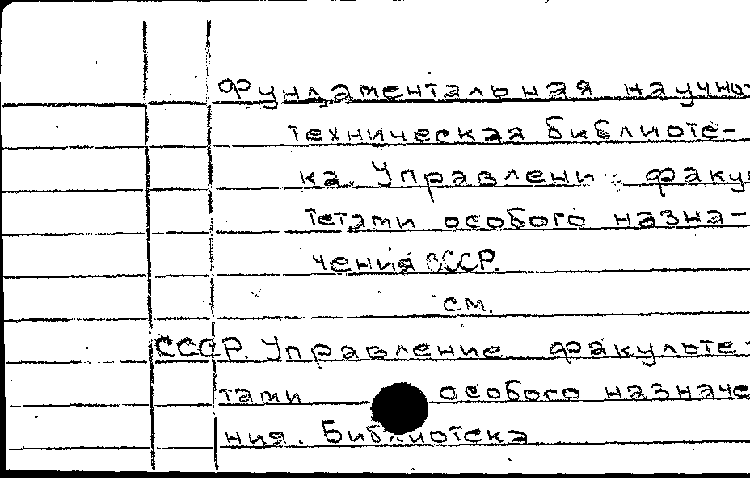 Фундаментальная научно
техническая библиоте-
ка. Управлени факу
тетами особого назна-
чения СССР.
см.
СССР. Управление факульте-
тами особого назначе
ния. Библиотека